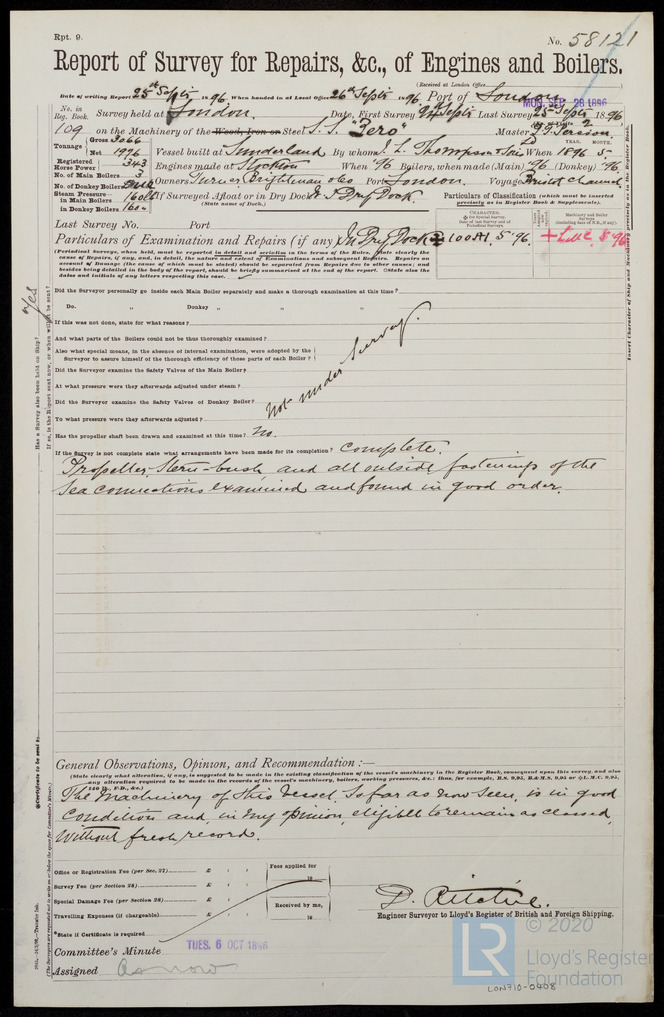 Rpt. 9.
No. 58121
Report of Survey for Repairs, &c., of Engines and Boilers.
(Received at London Office
Date of writing Report 25th Septr 1896 When handed in at Local Office 26th Septr 1896 Port of London
MON. SEP. 28 1896
No. in Reg. Book. Survey held at London. Date, First Survey Septr Last Survey 25 Septr 1896
109 on the Machinery of the Wood, Iron or Steel S.S. "Zero" Master
Tonnage Gross 3066
Net 1996
Vessel built at Sunderland By whom J. L. Thompson & Sons When 1896 5
Registered Horse Power 343
Engines made at Stockton When '96 Boilers, when made (Main) '96 (Donkey) '96
No. of Main Boilers 3
No. of Donkey Boilers
Owners Turner Brightman & Co Port London. Voyage Bristol Channel
Steam Pressure in Main Boilers 160 lb
in Donkey Boilers
If Surveyed Afloat or in Dry Dock Dry Dock.
(State name of Dock.)
Particulars of Classification (which must be inserted precisely as in Register Book & Supplements).
Last Survey No. Port
CHARACTER.
Machinery and Boiler Surveys
Particulars of Examination and Repairs (if any) In Dry Dock
100A1. 5.96.
+LMC 5.96
(Periodical Surveys, when held, must be reported in detail and seriatim in the terms of the Rules. State clearly the cause of Repairs, if any, and, in detail, the nature and extent of Examinations and subsequent Repairs. Repairs on account of Damage (the cause of which must be stated) should be separated from Repairs due to other causes; and besides being detailed in the body of the report, should be briefly summarised at the end of the report. State also the dates and initials of any letters respecting this case.
Did the Surveyor personally go inside each Main Boiler separately and make a thorough examination at this time?
Do. " Donkey " " "
If this was not done, state for what reasons?
And what parts of the Boilers could not be thus thoroughly examined?
Also what special means, in the absence of internal examination, were adopted by the
Surveyor to assure himself of the thorough efficiency of those parts of each Boiler?
Did the Surveyor examine the Safety Valves of the Main Boiler?
At what pressure were they afterwards adjusted under steam?
Did the Surveyor examine the Safety Valves of Donkey Boiler?
To what pressure were they afterwards adjusted?
Not under Survey.
Has the propeller shaft been drawn and examined at this time? No.
If the Survey is not complete state what arrangements have been made for its completion? Complete.
Propeller, Stern-bush and all outside fastenings of the
Sea connections examined and found in good order.
General Observations, Opinion, and Recommendation :—
(State clearly what alteration, if any, is suggested to be made in the existing classification of the vessel's machinery in the Register Book, consequent upon this survey, and also any alteration required to be made in the records of the vessel's machinery, boilers, working pressures, &c.: thus, for example, B.S. 9,95, B.&M.S. 9,95 or L.M.C. 9,95, 140 lb., F.D., &c.)
The Machinery of this Vessel, so far as now seen, is in good
condition and, in my opinion, eligible to remain as classed,
without fresh record.
Office or Registration Fee (per Sec. 27) £
Survey Fee (per Section 28) £
Special Damage Fee (per Section 28) £
Travelling Expenses (if chargeable) £
Fees applied for
18
Received by me,
18
D. Ritchie.
Engineer Surveyor to Lloyd's Register of British and Foreign Shipping.
*State if Certificate is required
Committee's Minute TUES. 6 OCT 1896
Assigned As now
Has a Survey also been held on Ship? Yes
If so, is the Report sent now, or when will it be sent?
Certificate to be sent to
Insert Character of Ship and Machinery precisely as in the Register Book.
LR
© 2020
Lloyd's Register
Foundation
LON710-0408